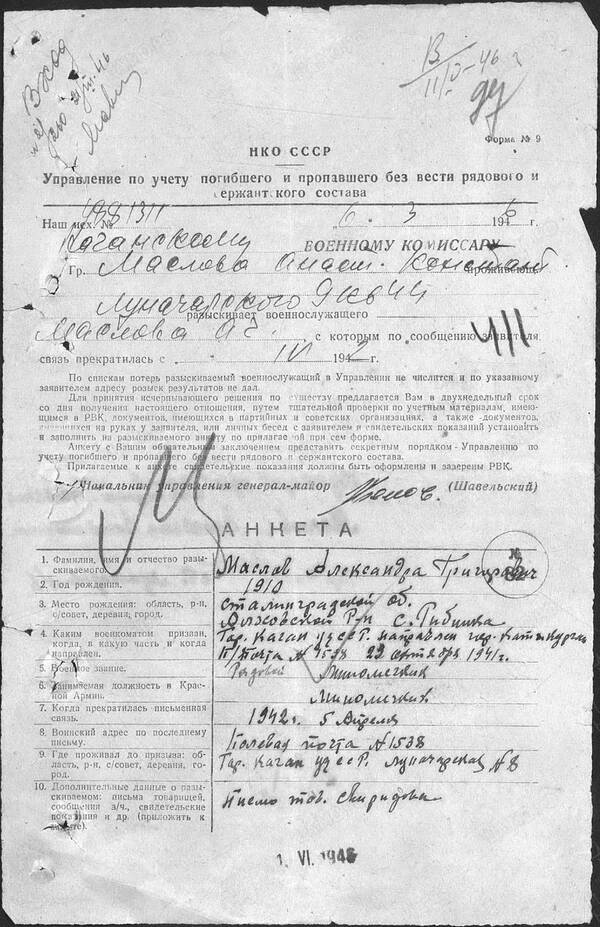 Вход
В/11/V-46 г
Форма № 9
НКО СССР
Управление по учету погибшего и пропавшего без вести рядового и
сержантского состава
Наш исх. № 6. 3 1946 г.
Каганскому ВОЕННОМУ КОМИССАРУ
Гр. Маслова Анаст. Констант проживающ
Луначарского
разыскивает военнослужащего
Маслова А Г с которым по сообщению заявителя
связь прекратилась с IV 1942 г.
По спискам потерь разыскиваемый военнослужащий в Управлении не числится и по указанному
заявителем адресу розыск результатов не дал.
Для принятия исчерпывающего решения по существу предлагается Вам в двухнедельный срок
со дня получения настоящего отношения, путем тщательной проверки по учетным материалам, имею-
щимся в РВК, документов, имеющихся в партийных и советских организациях, а также документов,
имеющихся на руках у заявителя, или личных бесед с заявителем и свидетельских показаний установить
и заполнить на разыскиваемого анкету по прилагаемой при сем форме.
Анкету с Вашим обязательным заключением представить секретным порядком Управлению по
учету погибшего и пропавшего без вести рядового и сержантского состава.
Прилагаемые к анкете свидетельские показания должны быть оформлены и заверены РВК.
Начальник управления генерал-майор (Шавельский)
АНКЕТА
1. Фамилия, имя и отчество разы-
скиваемого.
Маслов Александра Григорович
2. Год рождения.
1910
3. Место рождения: область, р-н,
с/совет, деревня, город.
Сталинградской об.
Р-н с. Рибинка
4. Каким военкоматом призван,
когда, в какую часть и когда
направлен.
Гор. Каган УзССР. направлен гор. Катикурган
П/почта № 1538 22 октября 1941 г.
5. Военное звание.
Рядовой Миномечик
6. Занимаемая должность в Крас-
ной Армии.
Миномечкик
7. Когда прекратилась письменная
связь.
1942 г. 5 Апреля
8. Воинский адрес по последнему
письму.
Полевая почта № 1538
9. Где проживал до призыва: об-
ласть, р-н, с/совет, деревня, го-
род.
Гор. Каган УзССР. Луначарская № 8
10. Дополнительные данные о разы-
скиваемом: письма товарищей,
сообщения в/ч., свидетельские
показания и др. (приложить к
анкете).
Писмо тов. Свиридова
1. VI. 1946